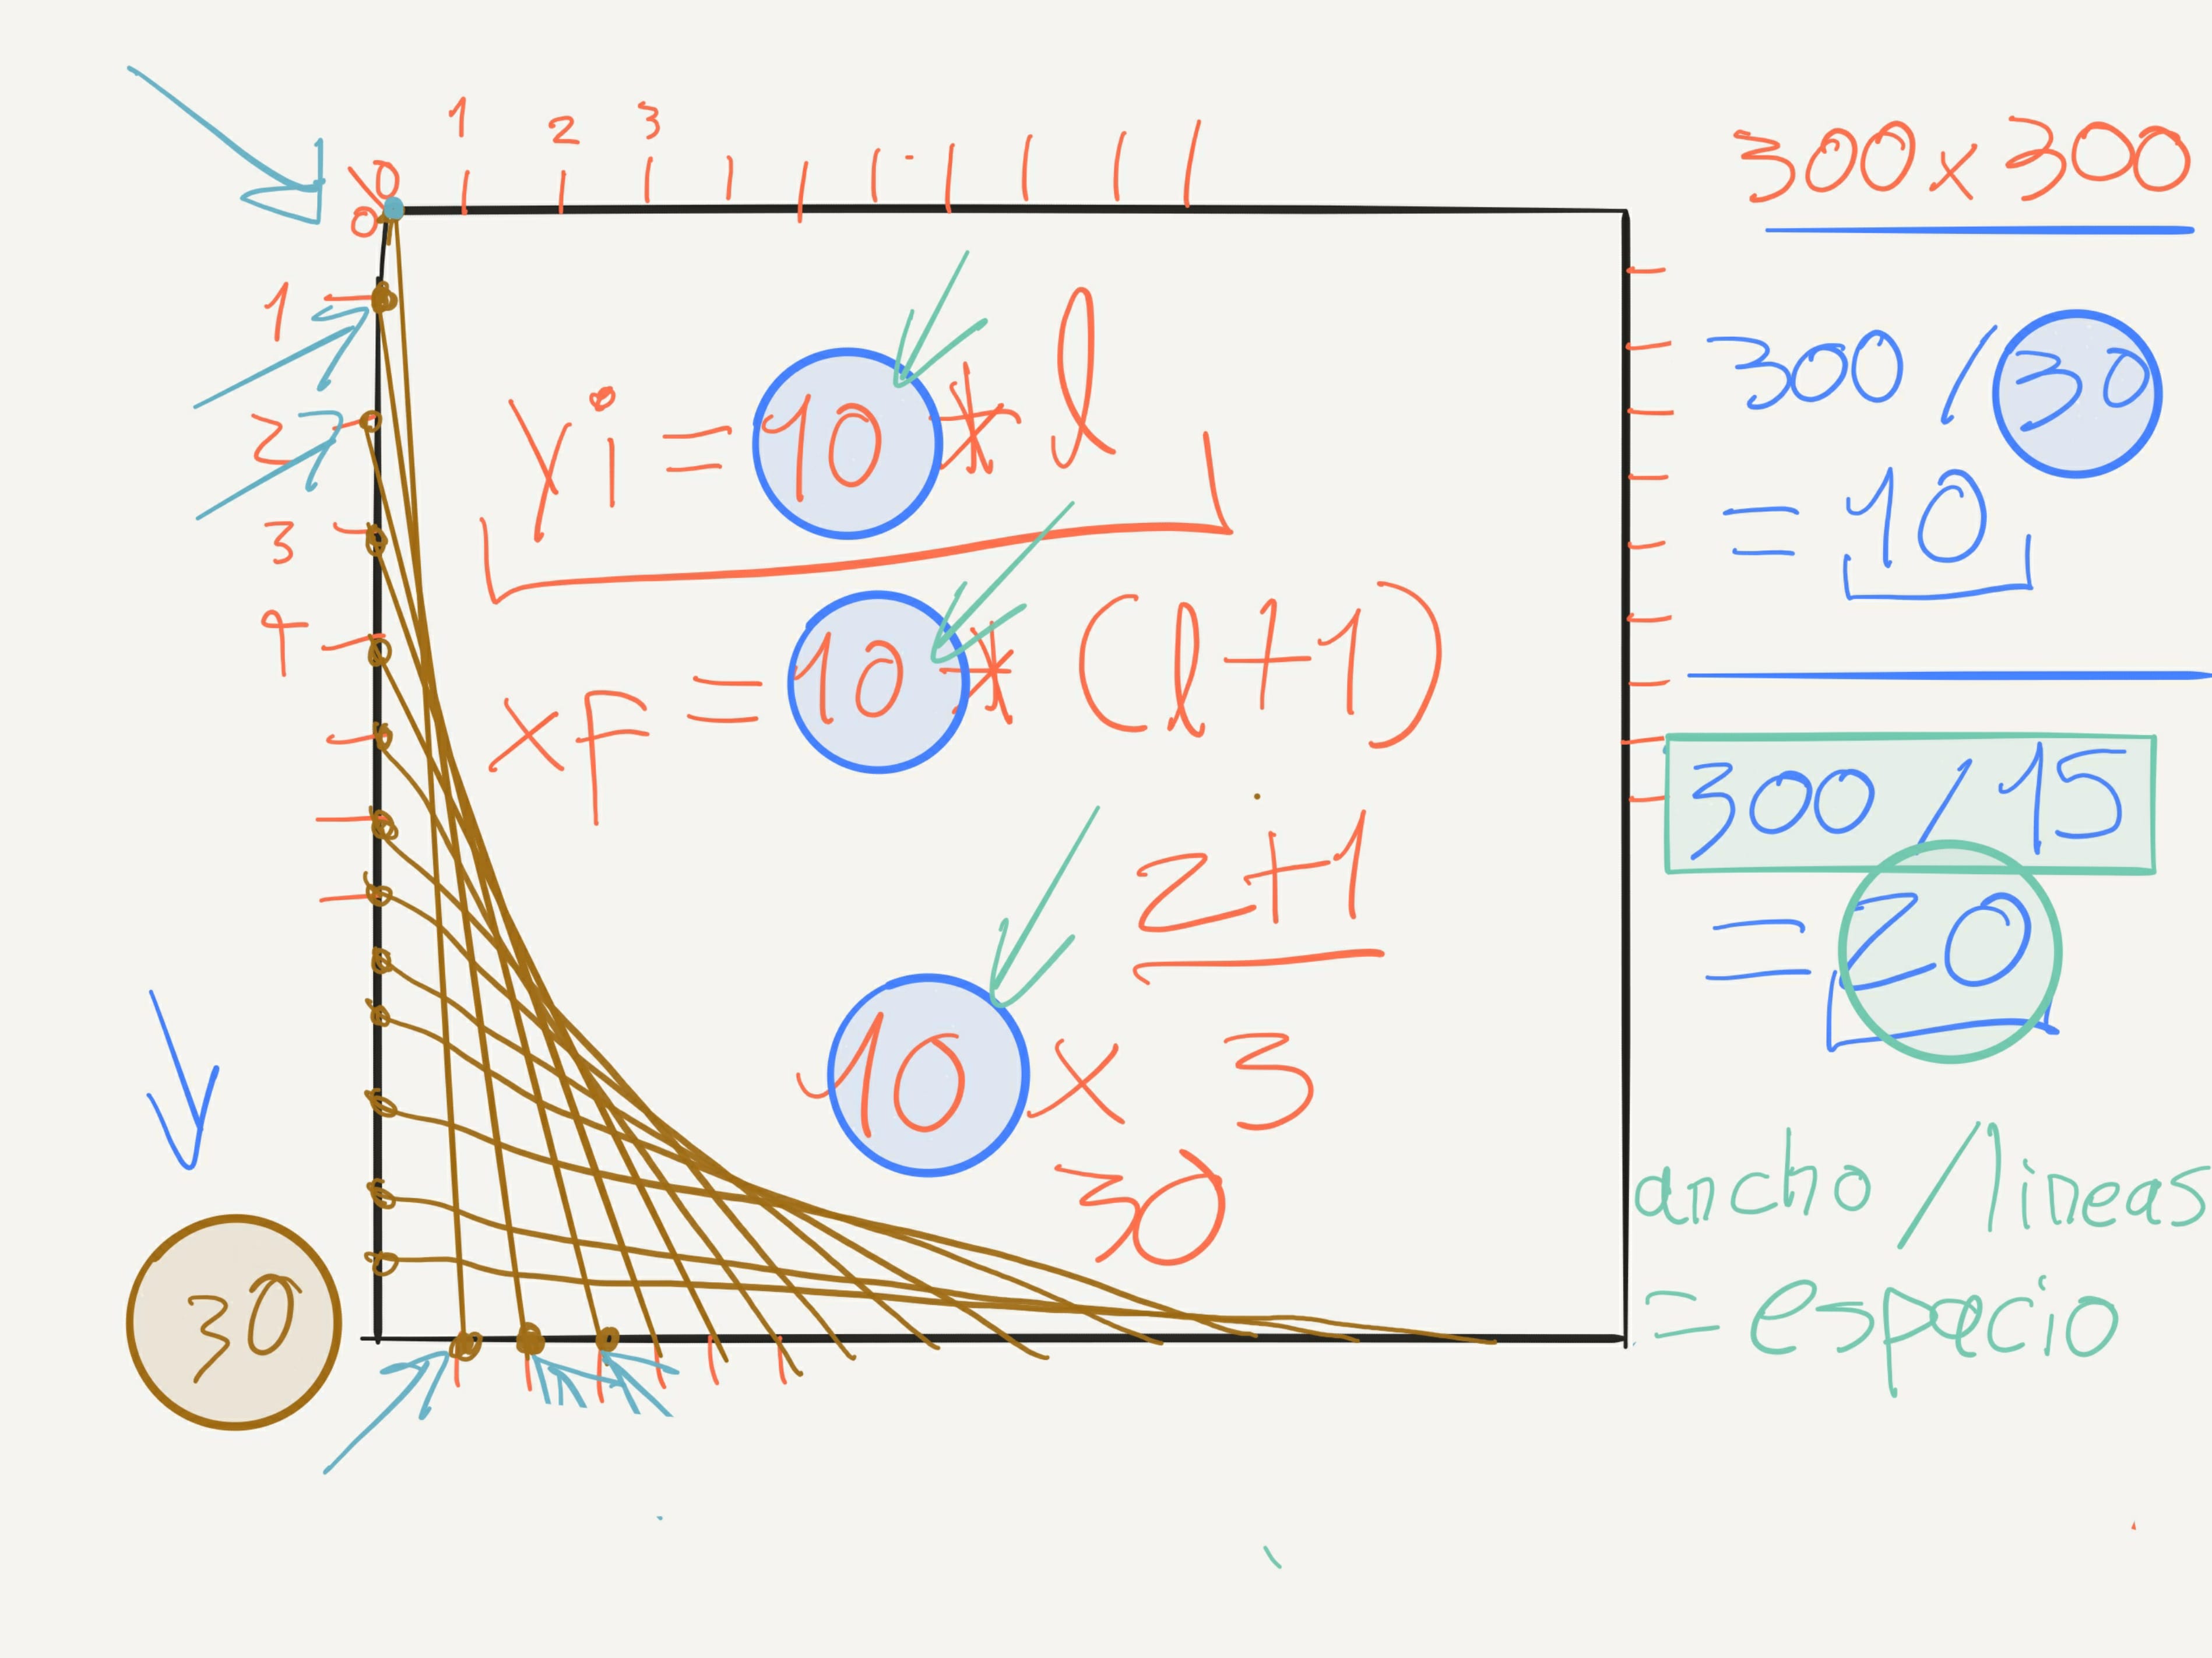 0 1 2 3
0
1
2
3
4
yi = 10 * l
xF = 10 * (l+1)
2+1
10 x 3
30
30
300 x 300
300 / 30
= 10
300 / 15
= 20
ancho / lineas
= espacio